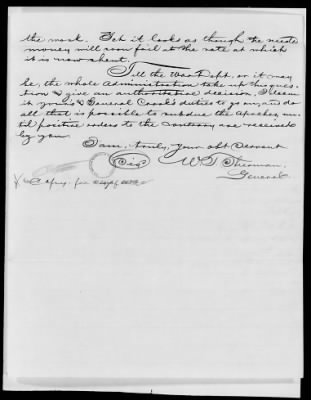 the work. Yet it looks as though the needed
money will soon fail at the rate at which
it is now spent.
Till the War Dept. or it may
be, the whole Administration take up this ques-
tion & give an authoritative decision, I deem
it yours & General Crook's duties to go on, and do
all that is possible to subdue the Apaches, un-
til positive orders to the contrary are received
by you.
I am, truly, Your obt Servant
Sig W T Sherman
General